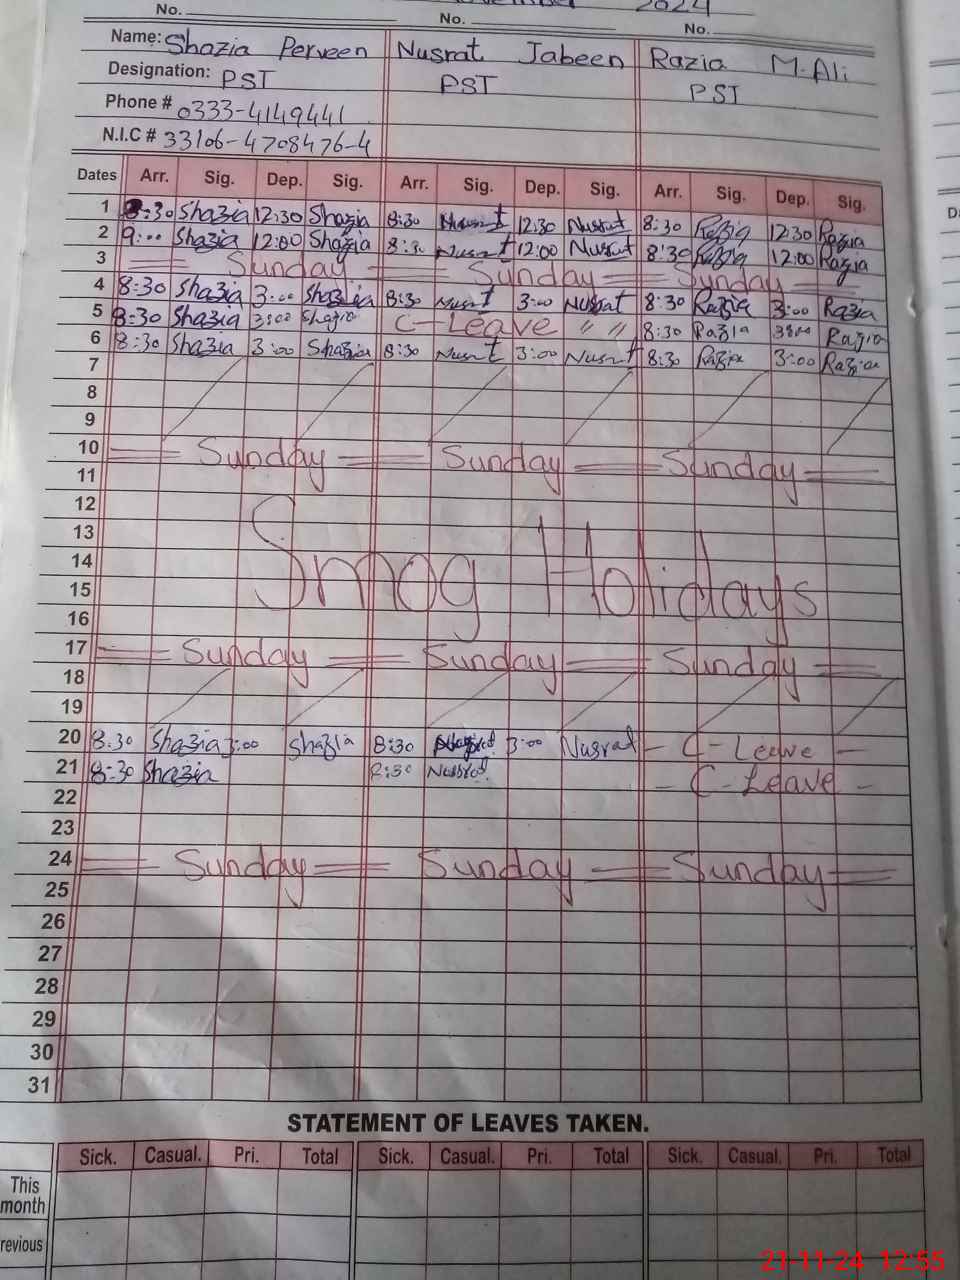 2024
No. No. No.
Name: Shazia Perveen Nusrat Jabeen Razia M. Ali
Designation: PST PST PST
Phone # 0333-4149441
N.I.C # 33106-4708476-4
Dates Arr. Sig. Dep. Sig. Arr. Sig. Dep. Sig. Arr. Sig. Dep. Sig.
1 8:30 Shazia 12:30 Shazia 8:30 Nusrat 12:30 Nusrat 8:30 Razia 12:30 Razia
2 9:00 Shazia 12:00 Shazia 8:30 Nusrat 12:00 Nusrat 8:30 Razia 12:00 Razia
3 Sunday Sunday Sunday
4 8:30 Shazia 3:00 Shazia 8:30 Nusrat 3:00 Nusrat 8:30 Razia 3:00 Razia
5 8:30 Shazia 3:00 Shazia C-Leave " " 8:30 Razia 3:00 Razia
6 8:30 Shazia 3:00 Shazia 8:30 Nusrat 3:00 Nusrat 8:30 Razia 3:00 Razia
7
8
9
10 Sunday Sunday Sunday
11
12
13
14 Smog Holidays
15
16
17 Sunday Sunday Sunday
18
19
20 8:30 Shazia 3:00 Shazia 8:30 Nusrat 3:00 Nusrat - C-Leave -
21 8:30 Shazia 8:30 Nusrat - C-Leave -
22
23
24 Sunday Sunday Sunday
25
26
27
28
29
30
31
STATEMENT OF LEAVES TAKEN.
Sick. Casual. Pri. Total Sick. Casual. Pri. Total Sick. Casual. Pri. Total
This
month
revious
21-11-24 12:55